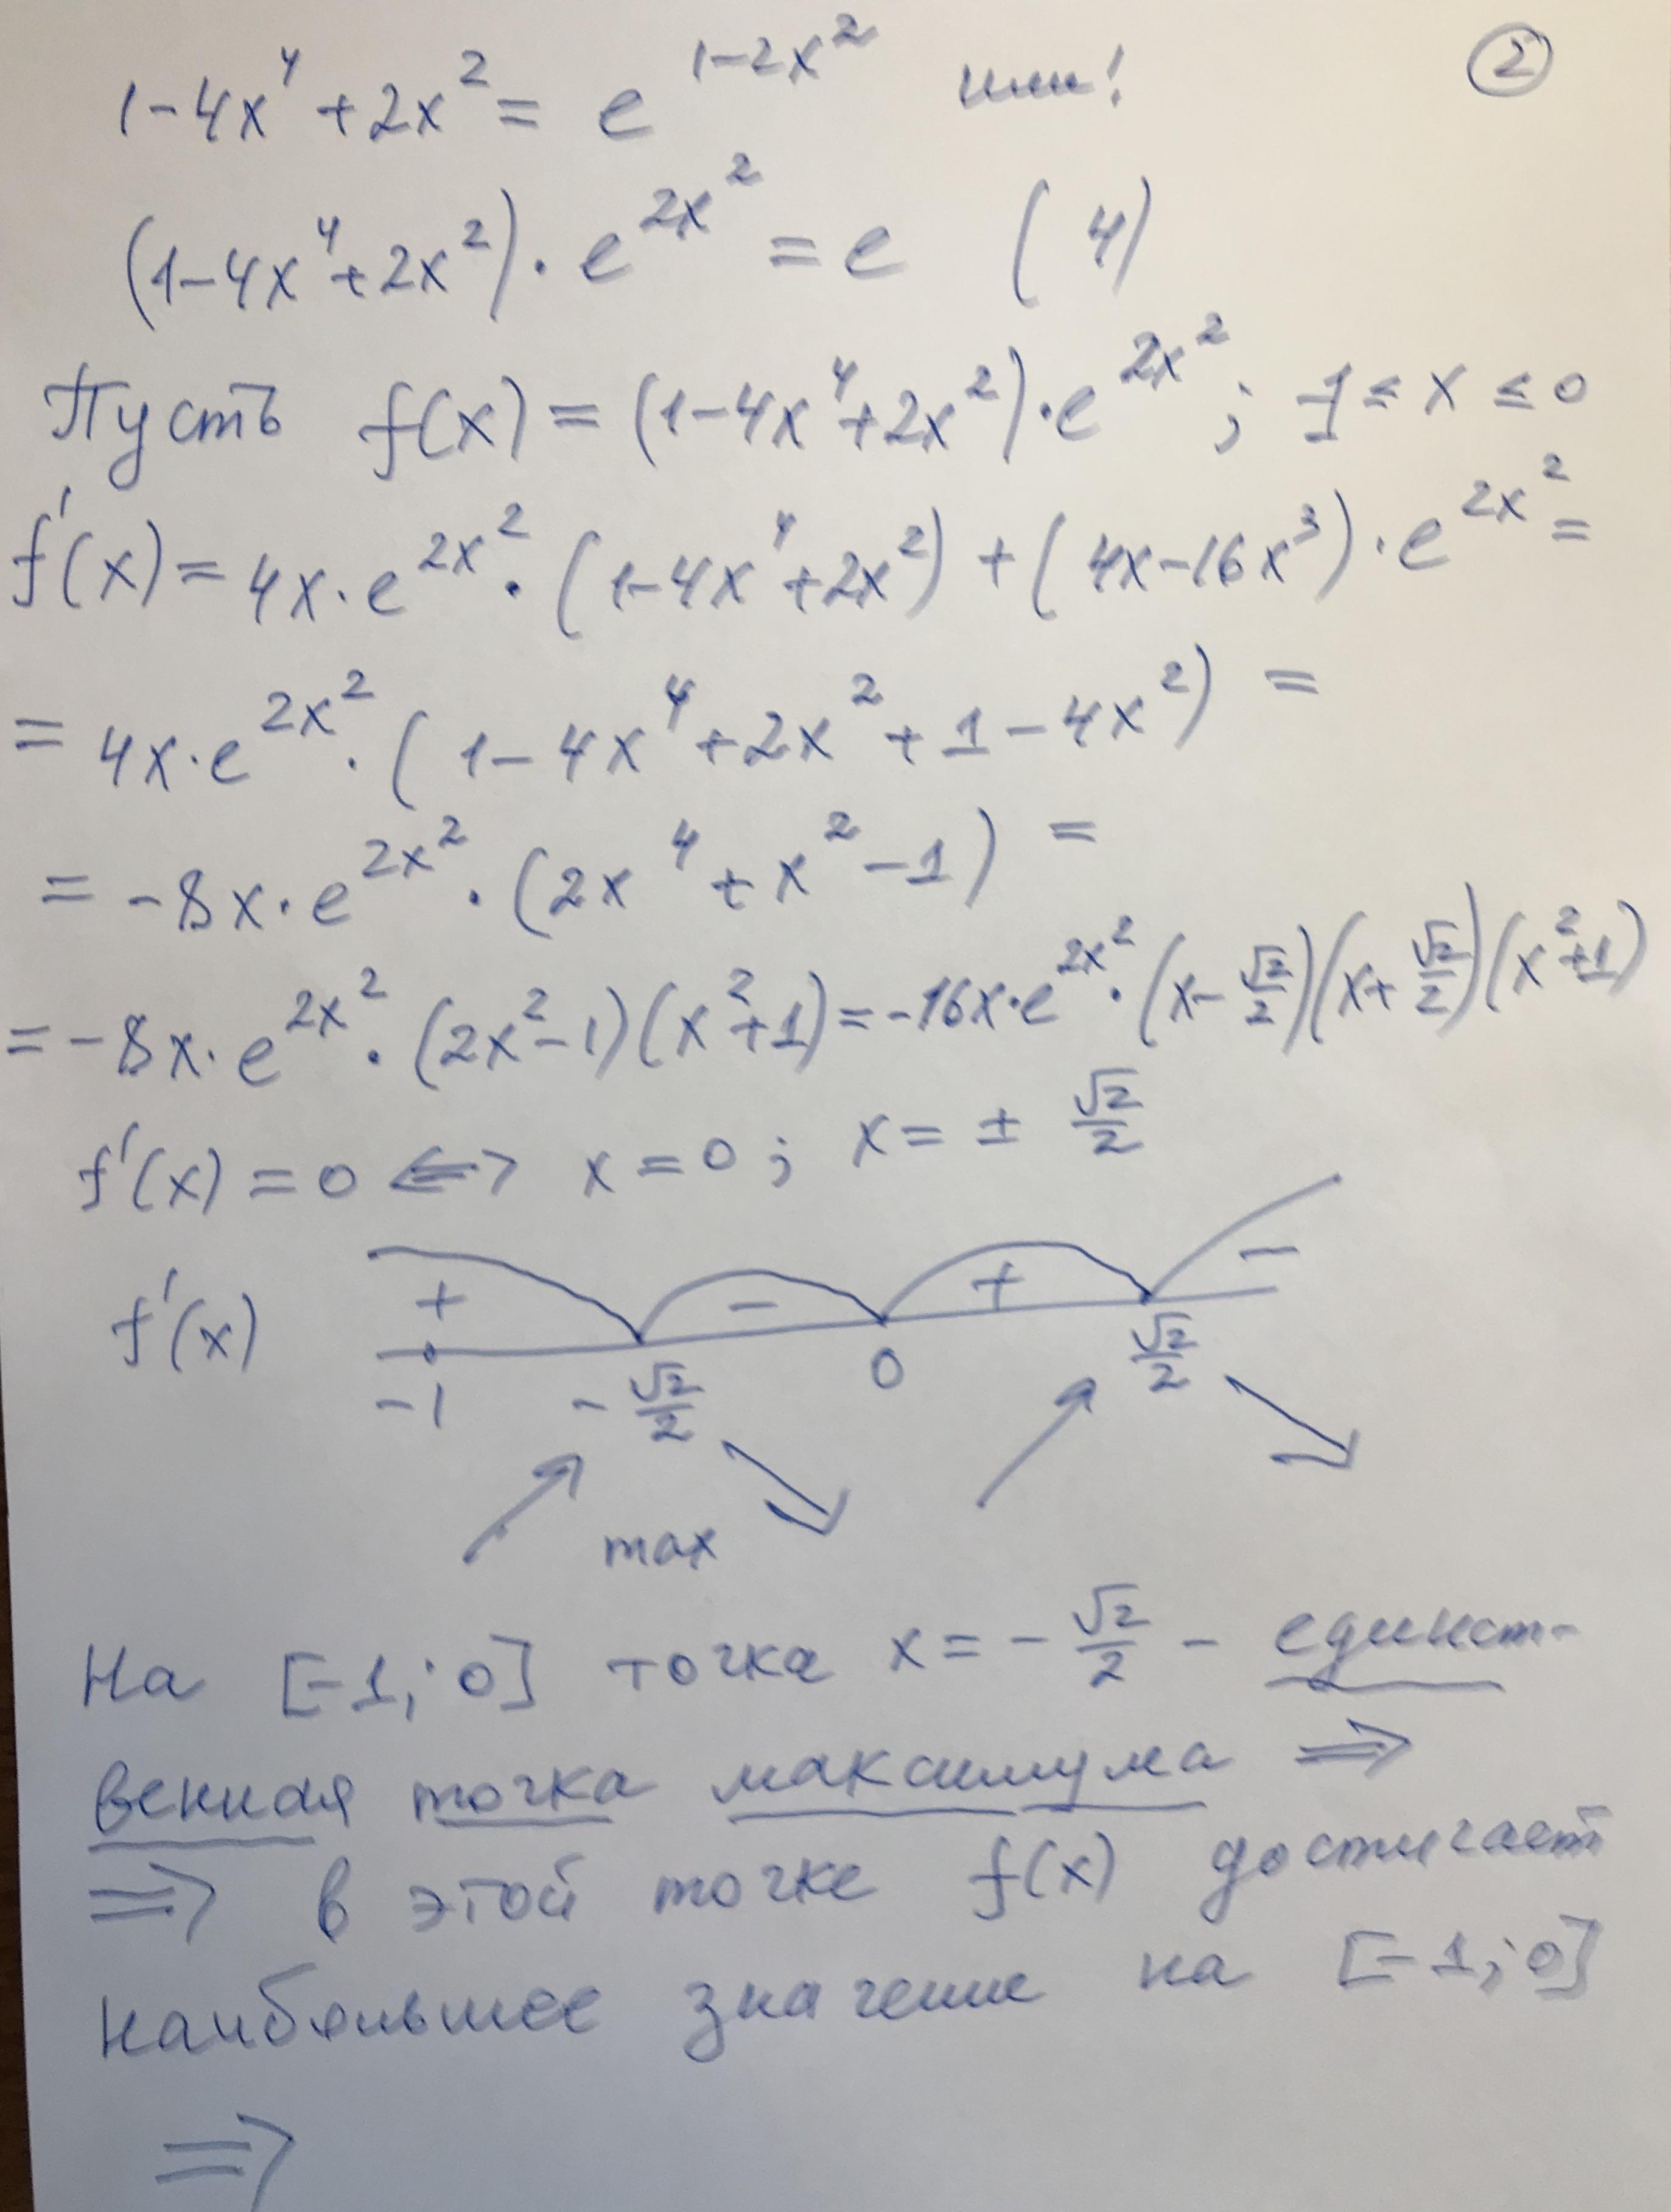 1-4x⁴+2x² = e^(1-2x²) или! ②
(1-4x⁴+2x²)·e^(2x²) = e (4)
Пусть f(x) = (1-4x⁴+2x²)·e^(2x²); -1 ≤ x ≤ 0
f'(x) = 4x·e^(2x²)·(1-4x⁴+2x²) + (4x-16x³)·e^(2x²) =
= 4x·e^(2x²)·(1-4x⁴+2x²+1-4x²) =
= -8x·e^(2x²)·(2x⁴+x²-1) =
= -8x·e^(2x²)·(2x²-1)(x²+1) = -16x·e^(2x²)·(x-√2/2)(x+√2/2)(x²+1)
f'(x) = 0 <=> x = 0; x = ± √2/2
+ - + -
f'(x)
-1 -√2/2 0 √2/2
max
На [-1; 0] точка x = -√2/2 - единст-
венная точка максимума =>
=> в этой точке f(x) достигает
наибольшее значение на [-1; 0]
=>